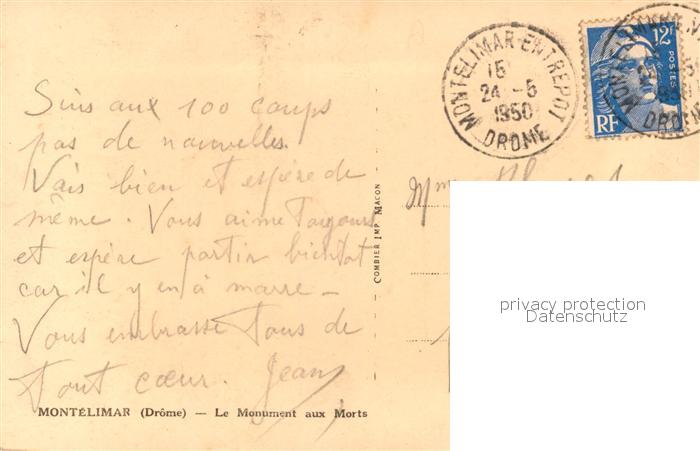 MONTÉLIMAR-ENTREPOT
15
24 -5
1950
DROME
12F
POSTES
RF
Suis aux 100 coups
pas de nouvelles.
Vais bien et espère de
même. Vous aime Toujours
et espère partir bientot
car il y en à marre -
Vous embrasse Tous de
Tout cœur. Jean
Mme
COMBIER IMP. MACON
privacy protection
Datenschutz
MONTÉLIMAR (Drôme) — Le Monument aux Morts